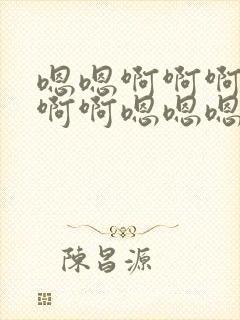 嗯嗯啊啊啊
啊啊嗯嗯嗯
陳昌源